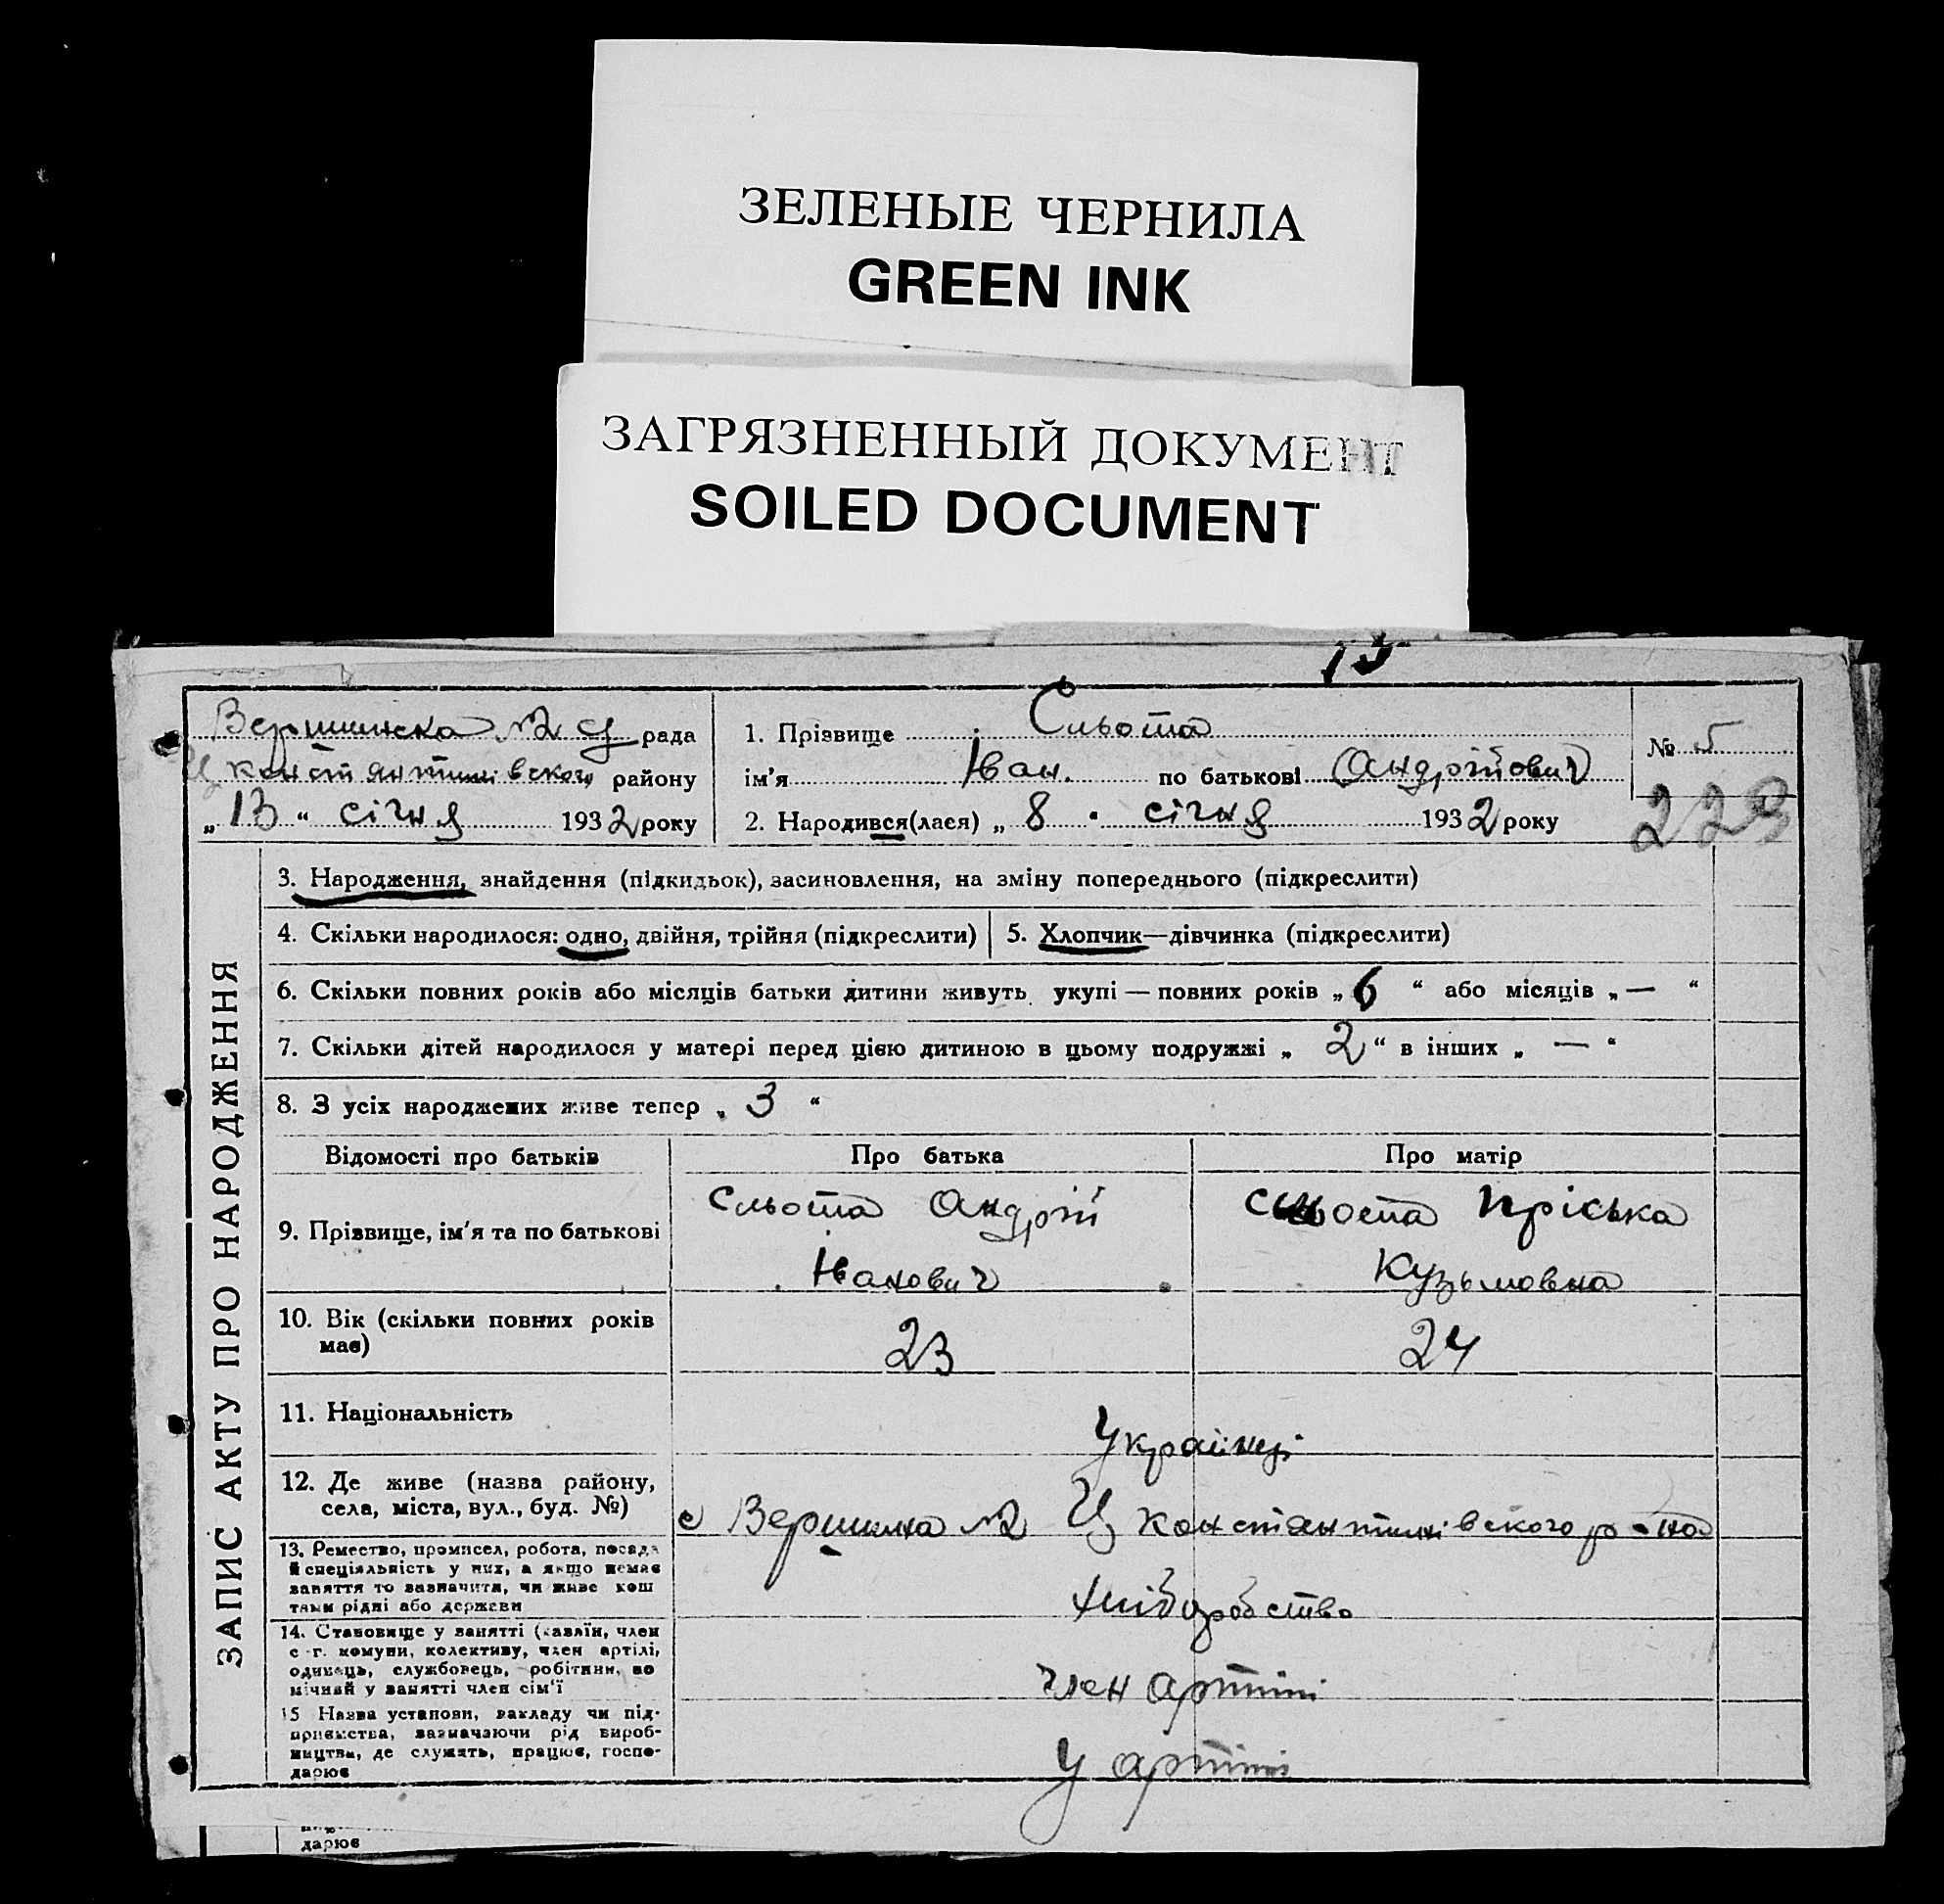 ЗЕЛЕНЫЕ ЧЕРНИЛА
GREEN INK
ЗАГРЯЗНЕННЫЙ ДОКУМЕНТ
SOILED DOCUMENT
15
Вершинска №2 рада
Ц константинівского району
„13“ січня 1932 року
1. Прізвище Сльота
ім’я Іван. по батькові Андрійович
2. Народився(лася) „8“ січня 1932 року
№ 5
223
ЗАПИС АКТУ ПРО НАРОДЖЕННЯ
3. Народження, знайдення (підкидьок), засиновлення, на зміну попереднього (підкреслити)
4. Скільки народилося: одно, двійня, трійня (підкреслити)
5. Хлопчик—дівчинка (підкреслити)
6. Скільки повних років або місяців батьки дитини живуть укупі — повних років „6“ або місяців „—“
7. Скільки дітей народилося у матері перед цією дитиною в цьому подружжі „2“ в інших „—“
8. З усіх народжених живе тепер „3“
Відомості про батьків Про батька Про матір
9. Прізвище, ім’я та по батькові
Сльота Андрій
Іванович
Сльота Пріська
Кузьмовна
10. Вік (скільки повних років
має)
23
24
11. Національність
Українці
12. Де живе (назва району,
села, міста, вул., буд. №)
с Вершина №2 Ц константинівского р-на
13. Ремество, промисел, робота, посада
й спеціяльність у них, а якщо немає
заняття то зазначити, чи живе кош
тами рідні або держави
хліборобство
14. Становище у занятті (хазяїн, член
с-г. комуни, колективу, член артілі,
одинець, службовець, робітник, по
мічний у занятті член сім’ї
член артілі
15 Назва установи, закладу чи під-
приємства, зазначаючи рід вироб-
ництва, де служить, працює, госпо-
дарює
у артілі
дарює